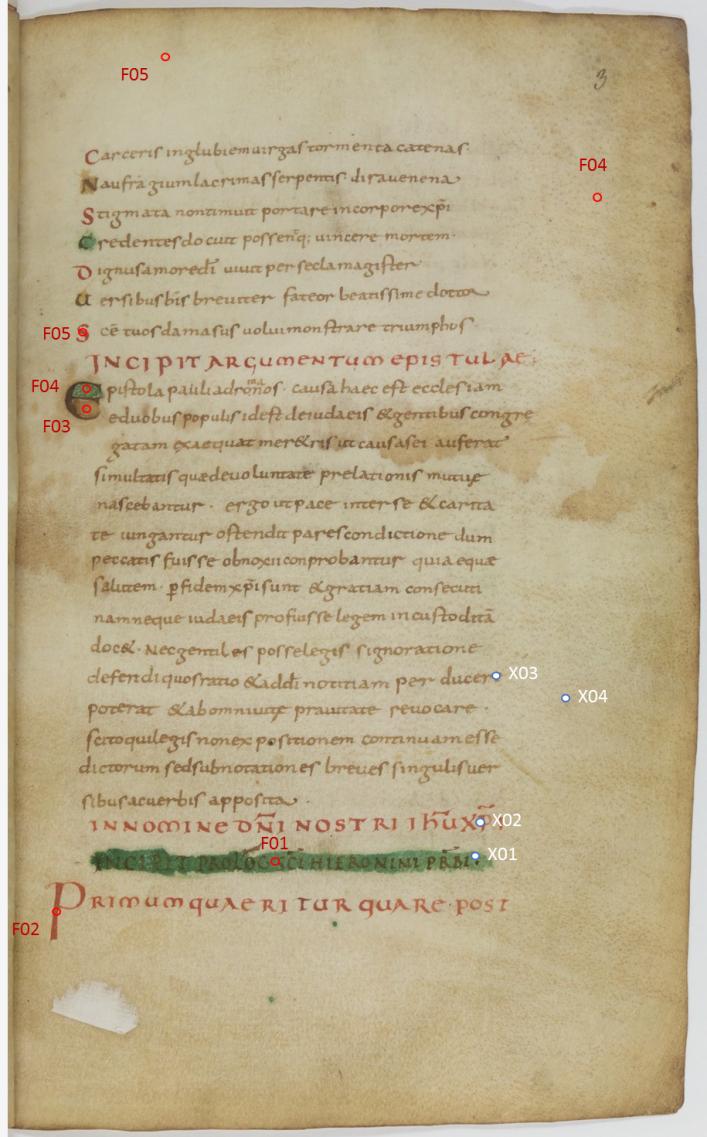 3
F05
F04
Carceris inglubiem uirgas tormenta catenas
Naufragium lacrimas serpentis dira uenena
Stigmata non timuit portare in corpore xp̄i
Credentes docuit possentq; uincere mortem
Dignus amore dī uiuit per secla magister
Uersibus his breuiter fateor beatissime doctor
F05 Sc̄e tuos damasus uolui monstrare triumphos
INCIPIT ARGUMENTUM EPISTULAE
F04 Epistola pauli ad romanos causa haec est ecclesiam
F03 e duobus populis id est de iudaeis & gentibus congre
gatam exaequat mer&ris ut causas ei auferat
simultatis quae de uoluntate prelationis mutuę
nascebantur · ergo ut pace inter se & carita
te iungantur ostendit pares condictione dum
peccatis fuisse obnoxii conprobantur quia equę
salutem · p̱ fidem xp̄i sunt & gratiam consecuti
nam neque iudaeis profuisse legem in custoditā
doc& · Nec gentiles posse legis signoratione
defendi quos ratio & ad dī notitiam per ducere X03
X04
poterat & ab omni uitę prauitate reuocare ·
scito qui legis non expositionem continuam esse
dictorum sed subnotationes breues singulis uer
sibus ac uerbis apposita ·
IN NOMINE DN̄I NOSTRI IHŪ XP̄I X02
F01
INCIPIT PROLOG SC̄I HIERONIMI PRB̄I X01
PRIMUM QUAERITUR QUARE · POST
F02